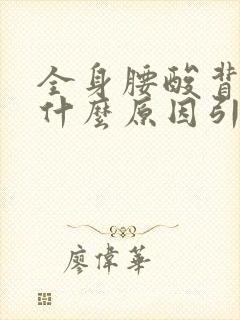 全身腰酸背
什麼原因引
廖偉華